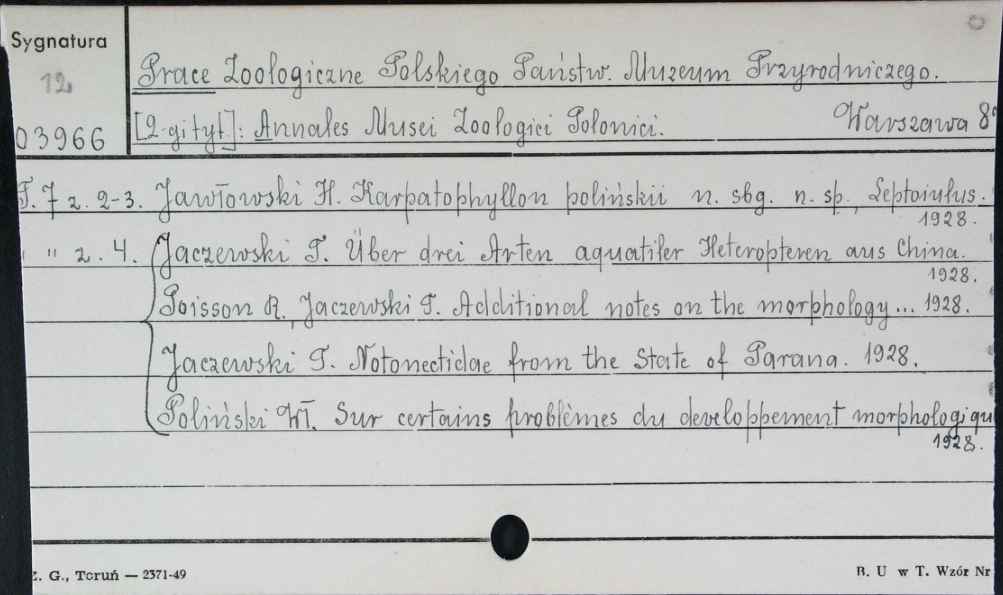 Sygnatura
12
03966
Prace Zoologiczne Polskiego Państw. Muzeum Przyrodniczego.
[2-gi tyt]: Annales Musei Zoologici Polonici. Warszawa 8°
T. 7 z. 2-3. Jawłowski H. Karpatophyllon polińskii n. sbg. n. sp., Leptoiulus.
1928.
" z. 4. Jaczewski T. Über drei Arten aquatiler Heteropteren aus China.
1928.
Poisson R., Jaczewski T. Additional notes on the morphology... 1928.
Jaczewski T. Notonectidae from the State of Parana. 1928.
Poliński Wł. Sur certains problèmes du developpement morphologiqu
1928.
Z. G., Toruń — 2371-49
B. U w T. Wzór Nr